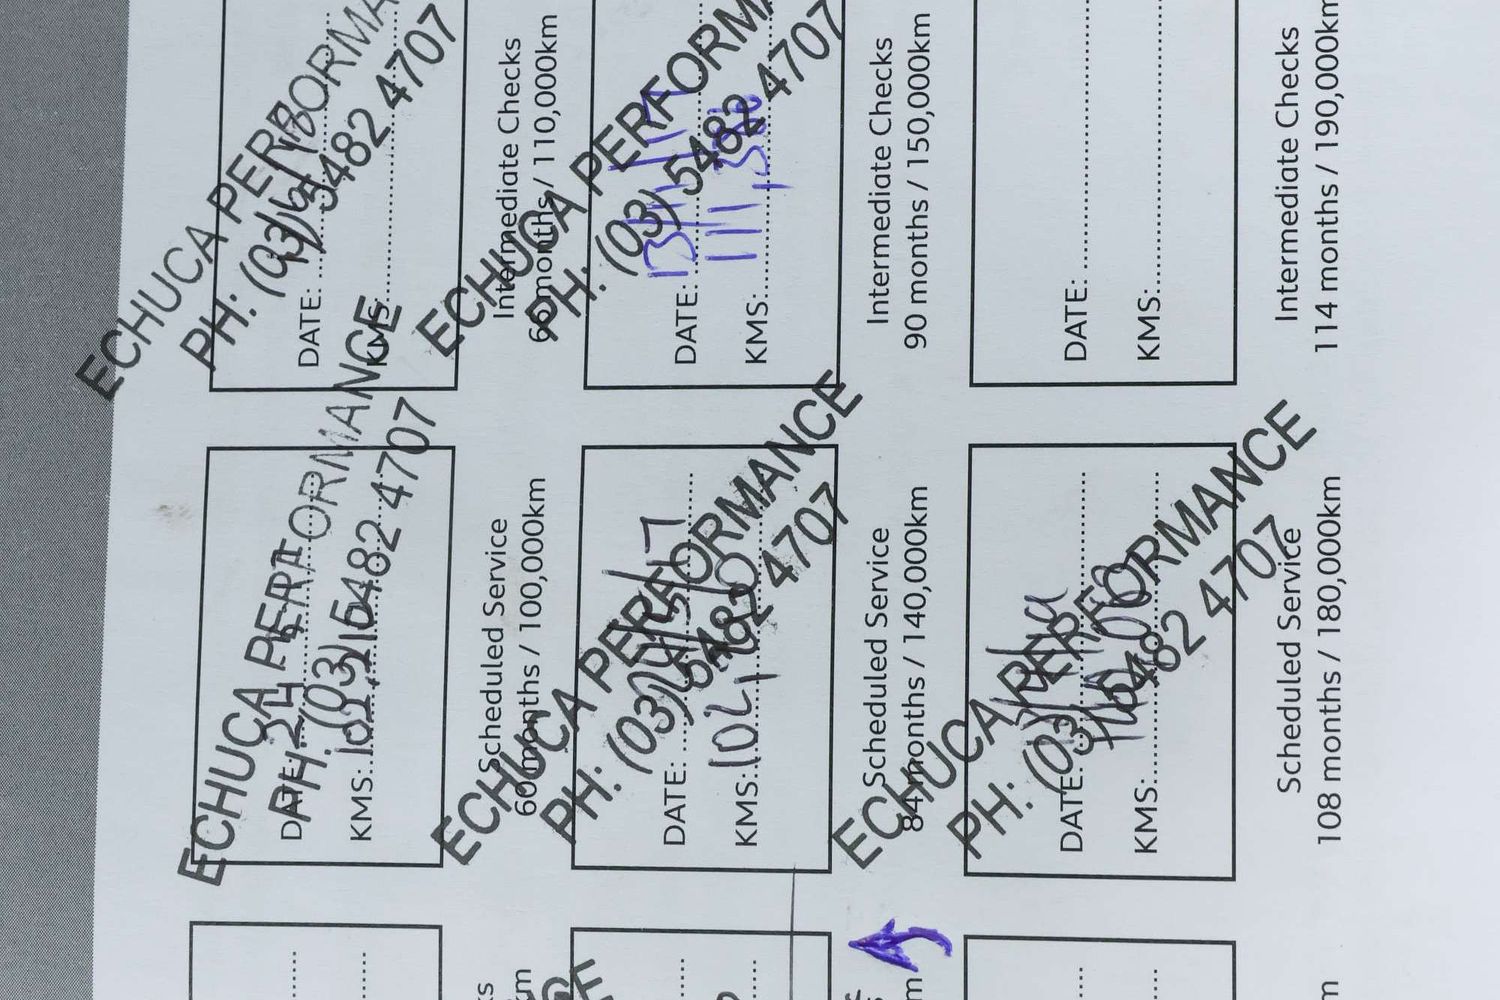 ECHUCA PERFORMANCE
PH: (03) 5482 4707
DATE:
KMS:
Scheduled Service
60 months / 100,000km
ECHUCA PERFORMA
PH: (03) 5482 4707
DATE:
KMS:
Intermediate Checks
66 months / 110,000km
ECHUCA PERFORMANCE
PH: (03) 5482 4707
DATE:
KMS:
Scheduled Service
84 months / 140,000km
ECHUCA PERFORMA
PH: (03) 5482 4707
DATE:
KMS: 111,
Intermediate Checks
90 months / 150,000km
ECHUCA PERFORMANCE
PH: (03) 5482 4707
DATE:
KMS:
Scheduled Service
108 months / 180,000km
DATE:
KMS:
Intermediate Checks
114 months / 190,000km